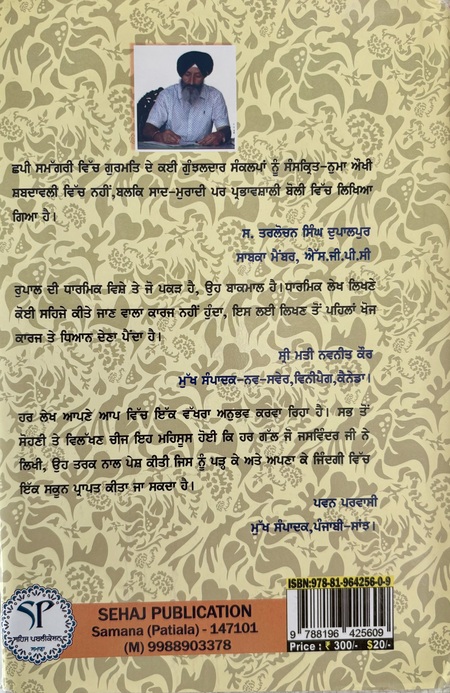 ਛਪੀ ਸਮੱਗਰੀ ਵਿੱਚ ਗੁਰਮਤਿ ਦੇ ਕਈ ਗੁੰਝਲਦਾਰ ਸੰਕਲਪਾਂ ਨੂੰ ਸੰਸਕ੍ਰਿਤ-ਨੁਮਾ ਔਖੀ
ਸ਼ਬਦਾਵਲੀ ਵਿੱਚ ਨਹੀਂ,ਬਲਕਿ ਸਾਦ-ਮੁਰਾਦੀ ਪਰ ਪ੍ਰਭਾਵਸ਼ਾਲੀ ਬੋਲੀ ਵਿੱਚ ਲਿਖਿਆ
ਗਿਆ ਹੈ।
ਸ. ਤਰਲੋਚਨ ਸਿੰਘ ਦੁਪਾਲਪੁਰ
ਸਾਬਕਾ ਮੈਂਬਰ, ਐੱਸ.ਜੀ.ਪੀ.ਸੀ
ਰੁਪਾਲ ਦੀ ਧਾਰਮਿਕ ਵਿਸ਼ੇ ਤੇ ਜੋ ਪਕੜ ਹੈ, ਉਹ ਬਾਕਮਾਲ ਹੈ।ਧਾਰਮਿਕ ਲੇਖ ਲਿਖਣੇ
ਕੋਈ ਸਹਿਜੇ ਕੀਤੇ ਜਾਣ ਵਾਲਾ ਕਾਰਜ ਨਹੀਂ ਹੁੰਦਾ, ਇਸ ਲਈ ਲਿਖਣ ਤੋਂ ਪਹਿਲਾਂ ਖੋਜ
ਕਾਰਜ ਤੇ ਧਿਆਨ ਦੇਣਾ ਪੈਂਦਾ ਹੈ।
ਸ੍ਰੀ ਮਤੀ ਨਵਨੀਤ ਕੌਰ
ਮੁੱਖ ਸੰਪਾਦਕ-ਨਵ-ਸਵੇਰ,ਵਿਨੀਪੈਗ,ਕੈਨੇਡਾ।
ਹਰ ਲੇਖ ਆਪਣੇ ਆਪ ਵਿੱਚ ਇੱਕ ਵੱਖਰਾ ਅਨੁਭਵ ਕਰਵਾ ਰਿਹਾ ਹੈ। ਸਭ ਤੋਂ
ਸੋਹਣੀ ਤੇ ਵਿਲੱਖਣ ਚੀਜ ਇਹ ਮਹਿਸੂਸ ਹੋਈ ਕਿ ਹਰ ਗੱਲ ਜੋ ਜਸਵਿੰਦਰ ਜੀ ਨੇ
ਲਿਖੀ, ਉਹ ਤਰਕ ਨਾਲ ਪੇਸ਼ ਕੀਤੀ ਜਿਸ ਨੂੰ ਪੜ੍ਹ ਕੇ ਅਤੇ ਅਪਣਾ ਕੇ ਜਿੰਦਗੀ ਵਿੱਚ
ਇੱਕ ਸਕੂਨ ਪ੍ਰਾਪਤ ਕੀਤਾ ਜਾ ਸਕਦਾ ਹੈ।
ਪਵਨ ਪਰਵਾਸੀ
ਮੁੱਖ ਸੰਪਾਦਕ,ਪੰਜਾਬੀ-ਸਾਂਝ।
SP
ਸਹਿਜ ਪਬਲੀਕੇਸ਼ਨ
ਸਮਾਣਾ
SEHAJ PUBLICATION
Samana (Patiala) - 147101
(M) 9988903378
ISBN:978-81-964256-0-9
9 788196 425609
Price : ₹ 300/- $20/-